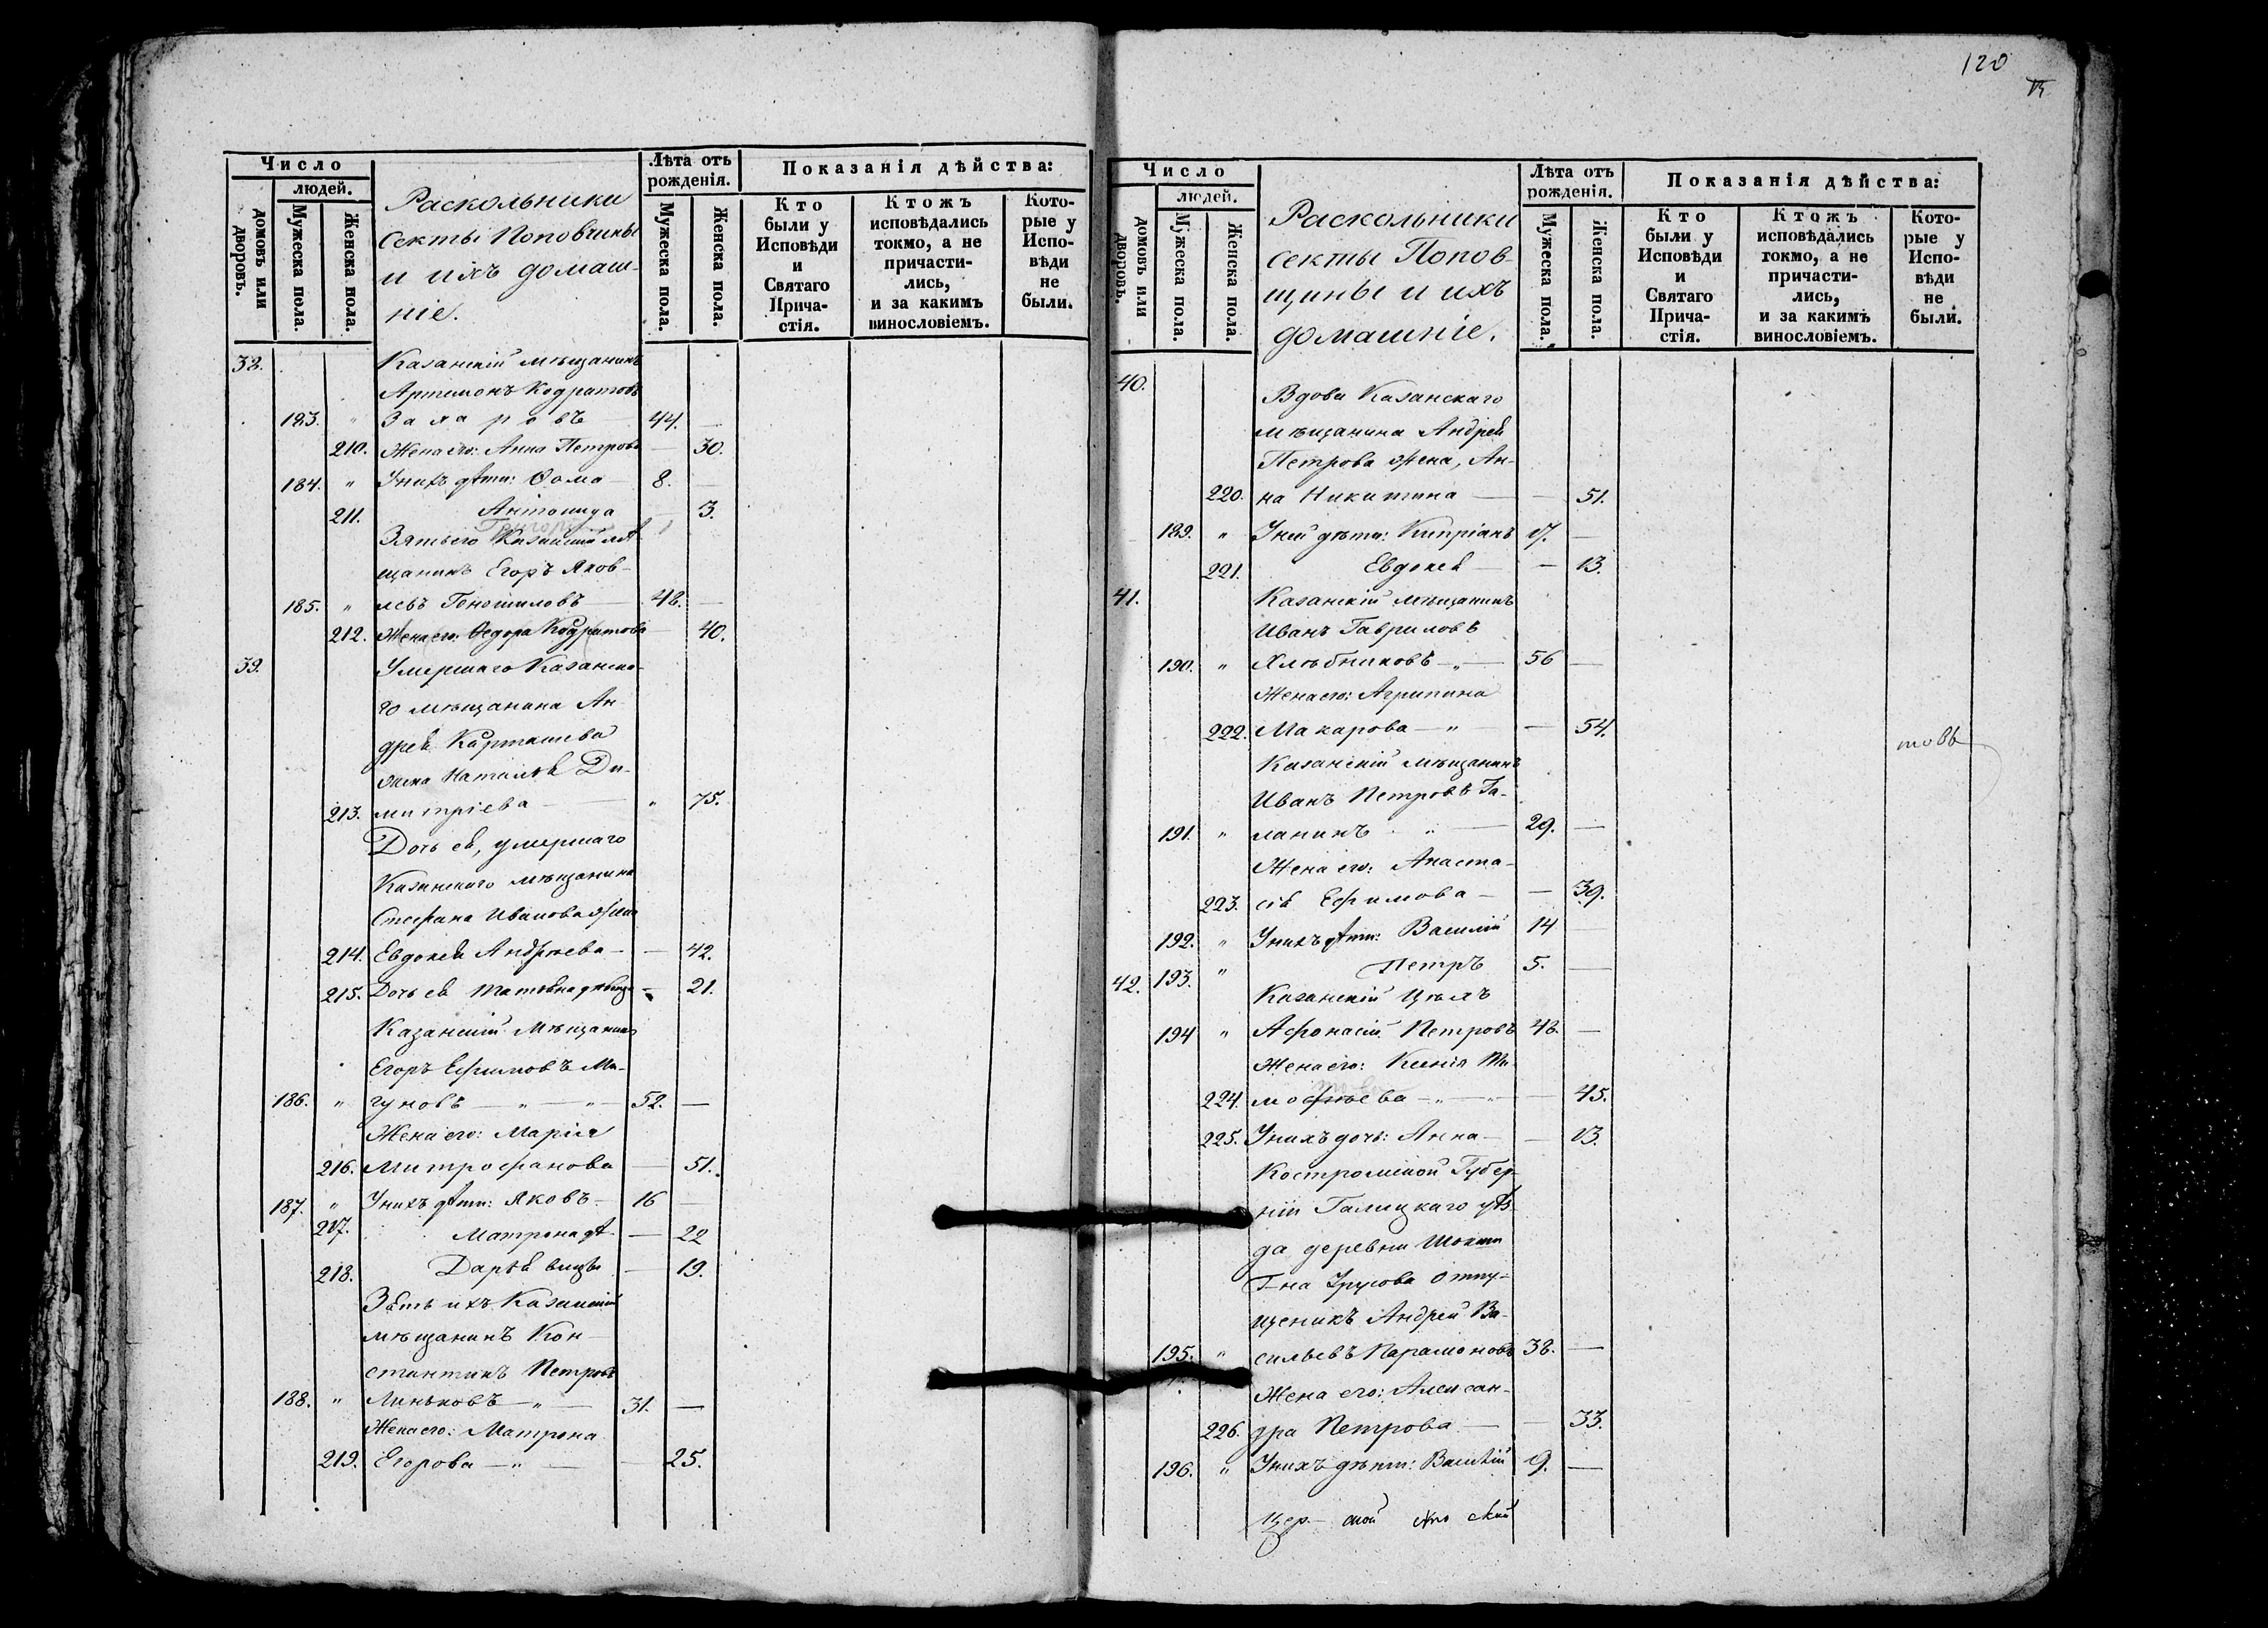 120
Число
людей.
домовъ или дворовъ.
Мужеска пола.
Женска пола.
Раскольники
секты Поповчины
и ихъ домаш-
ніе.
Лѣта отъ рожденія.
Мужеска пола.
Женска пола.
Показанія дѣйства:
Кто были у Исповѣди и Святаго Прича- стія.
Ктожъ исповѣдались токмо, а не причасти- лись, и за какимъ винословіемъ.
Кото- рые у Испо- вѣди не были.
38. Казанскій мѣщанинъ
Артемонъ Кодратовъ
183. " Захаровъ 44. —
210. Жена его: Анна Петрова — 30.
184. " У нихъ дѣти: Ѳома — 8. —
211. Антонида — 3.
Зять его Казанскій мѣ-
щанинъ Егоръ Яков-
185. " левъ 48. —
212. Жена его: Ѳедора Кодратова — 40.
39. Умершаго Казанска-
го мѣщанина Ан-
дрея Карташева
жена Наталья Ди-
213. митріева — " 75.
Дочь ея, умершаго
Казанскаго мѣщанина
Стефана Иванова жена
214. Евдокея Андреева — — 42.
215. Дочь ея — 21.
Казанскій Мѣщанинъ
Егоръ Ефимовъ Ма-
186. " гуновъ — " — " 52. —
Жена его: Марія
216. Митрофанова — 51.
187. " У нихъ дѣти: Яковъ — 16 —
217. Матрона дѣ- — 22
218. Дарья вицы — 19.
Зять ихъ Казанскій
мѣщанинъ Кон-
стантинъ Петровъ
188. " Линьковъ — " — 31. —
Жена его: Матрона
219. Егорова — " — — 25.
Число
людей.
домовъ или дворовъ.
Мужеска пола.
Женска пола.
Раскольники
секты Попов-
щины и ихъ
домашніе.
Лѣта отъ рожденія.
Мужеска пола.
Женска пола.
Показанія дѣйства:
Кто были у Исповѣди и Святаго Прича- стія.
Ктожъ исповѣдались токмо, а не причасти- лись, и за какимъ винословіемъ.
Кото- рые у Испо- вѣди не были.
40. Вдова Казанскаго
мѣщанина Андрея
Петрова жена, Ан-
220. на Никитина — — 51.
189. " У ней дѣти: Кипріанъ 17. —
221. Евдокея — — 13.
41. Казанскій мѣщанинъ
Иванъ Гавриловъ
190. " Хлѣбниковъ — " — 56 —
Жена его: Агрипина
222. Макарова — " — — 54.
Казанскій мѣщанинъ
Иванъ Петровъ Га-
191. " ланинъ " — 29. —
Жена его: Анаста-
223. сія Ефимова — — 39.
192. " У нихъ дѣти: Василій 14 —
193. " Петръ 5. —
42. Казанскій
194 " Афонасій Петровъ 48. —
Жена его: Ксенія Ти-
224. мофѣева — " — — 45.
225. У нихъ дочь: Анна — — 13.
Костромской Губер-
ніи Галицкаго уѣз-
да деревни
Г-на Урусова отпу-
щеникъ Андрей Ва-
195. " сильевъ Парамоновъ 38. —
Жена его: Алексан-
226. дра Петрова — — 33.
196. " У нихъ дѣти: Василій 9. —